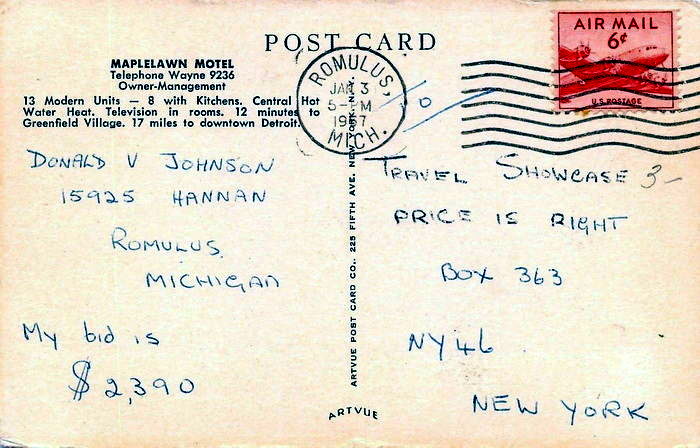 POST CARD
MAPLELAWN MOTEL
Telephone Wayne 9236
Owner-Management
13 Modern Units — 8 with Kitchens. Central Hot
Water Heat. Television in rooms. 12 minutes to
Greenfield Village. 17 miles to downtown Detroit.
ROMULUS,
JAN 3
5-PM
1957
MICH.
AIR MAIL
6¢
U.S. POSTAGE
10
DONALD V JOHNSON
15925 HANNAN
ROMULUS
MICHIGAN
My bid is
$2,390
ARTVUE POST CARD CO., 225 FIFTH AVE. NEW YORK, N.Y.
ARTVUE
TRAVEL SHOWCASE 3-
PRICE IS RIGHT
BOX 363
NY 46
NEW YORK